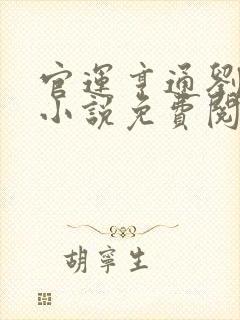 官運亨通劉
小說免費閱
胡寧生